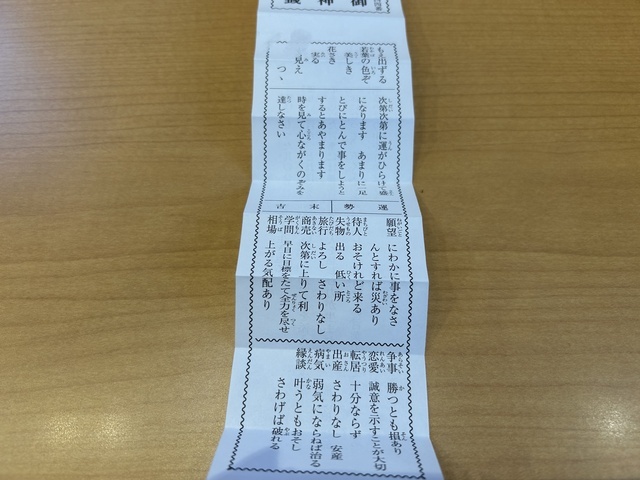 御神籤
もえ出ずる
若葉の色ぞ
美しき
花さき
実る
見え
つゝ
次第次第に運がひらけて盛
になります あまりに一足
とびにとんで事をしようと
するとあやまります
時を見て心ながくのぞみを
達しなさい
運勢 末吉
願望 にわかに事をなさ
んとすれば災あり
待人 おそけれど来る
失物 出る 低い所
旅行 よろし さわりなし
商売 次第に上りて利
学問 早目に目標をたて全力を尽せ
相場 上がる気配あり
争事 勝つとも損あり
恋愛 誠意を示すことが大切
転居 十分ならず
出産 さわりなし 安産
病気 弱気にならねば治る
縁談 叶うともおそし
さわげば破れる